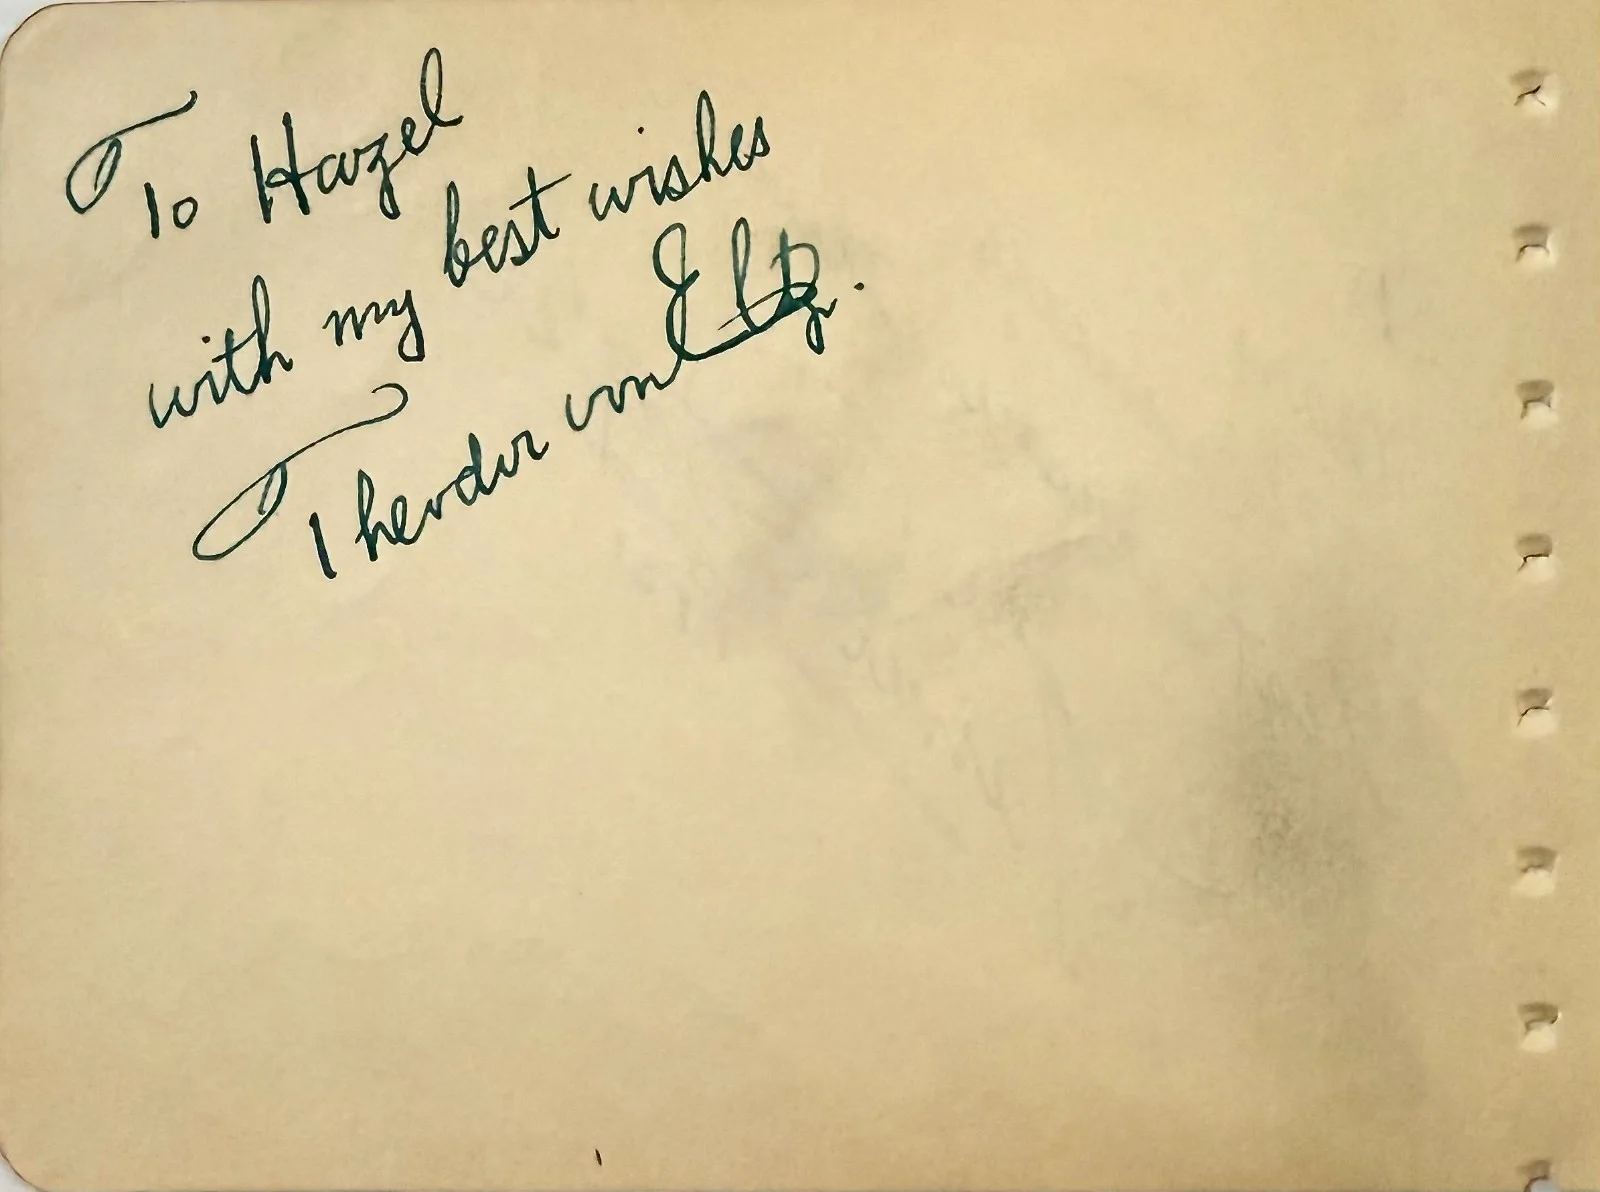 To Hazel
with my best wishes
Theodor von Eltz.